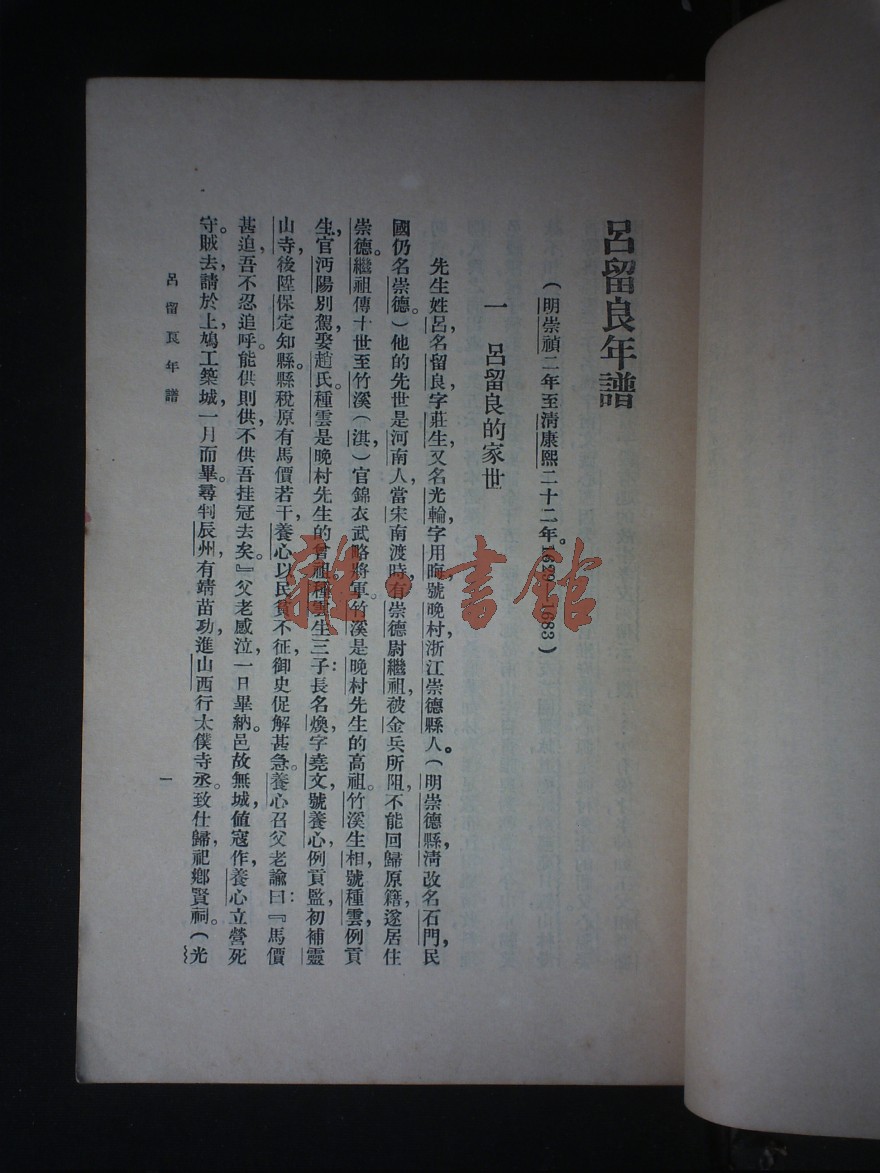 呂留良年譜
(明崇禎二年至清康熙二十二年。1629-1683)
一　呂留良的家世
先生姓呂,名留良,字莊生,又名光輪,字用晦,號晚村,浙江崇德縣人。(明崇德縣,清改名石門,民
國仍名崇德。)他的先世是河南人,當宋南渡時,有崇德尉繼祖,被金兵所阻,不能回歸原籍,遂居住
崇德。繼祖傳十世至竹溪(淇)官錦衣武略將軍。竹溪是晚村先生的高祖。竹溪生相,號種雲,例貢
生,官沔陽別駕,娶趙氏。種雲是晚村先生的曾祖。種雲生三子:長名煥,字堯文,號養心,例貢監,初補靈
山寺後陞保定知縣。縣稅原有馬價若干,養心以民貧不征,御史促解甚急。養心召父老諭曰:『馬價
甚迫,吾不忍追呼。能供則供,不供吾挂冠去矣。』父老感泣,一日畢納。邑故無城,值寇作,養心立營死
守。賊去,請於上,鳩工築城,一月而畢。尋判辰州,有靖苗功,進山西行太僕寺丞。致仕歸,祀鄉賢祠。(光
呂留良年譜
一
雜·書館